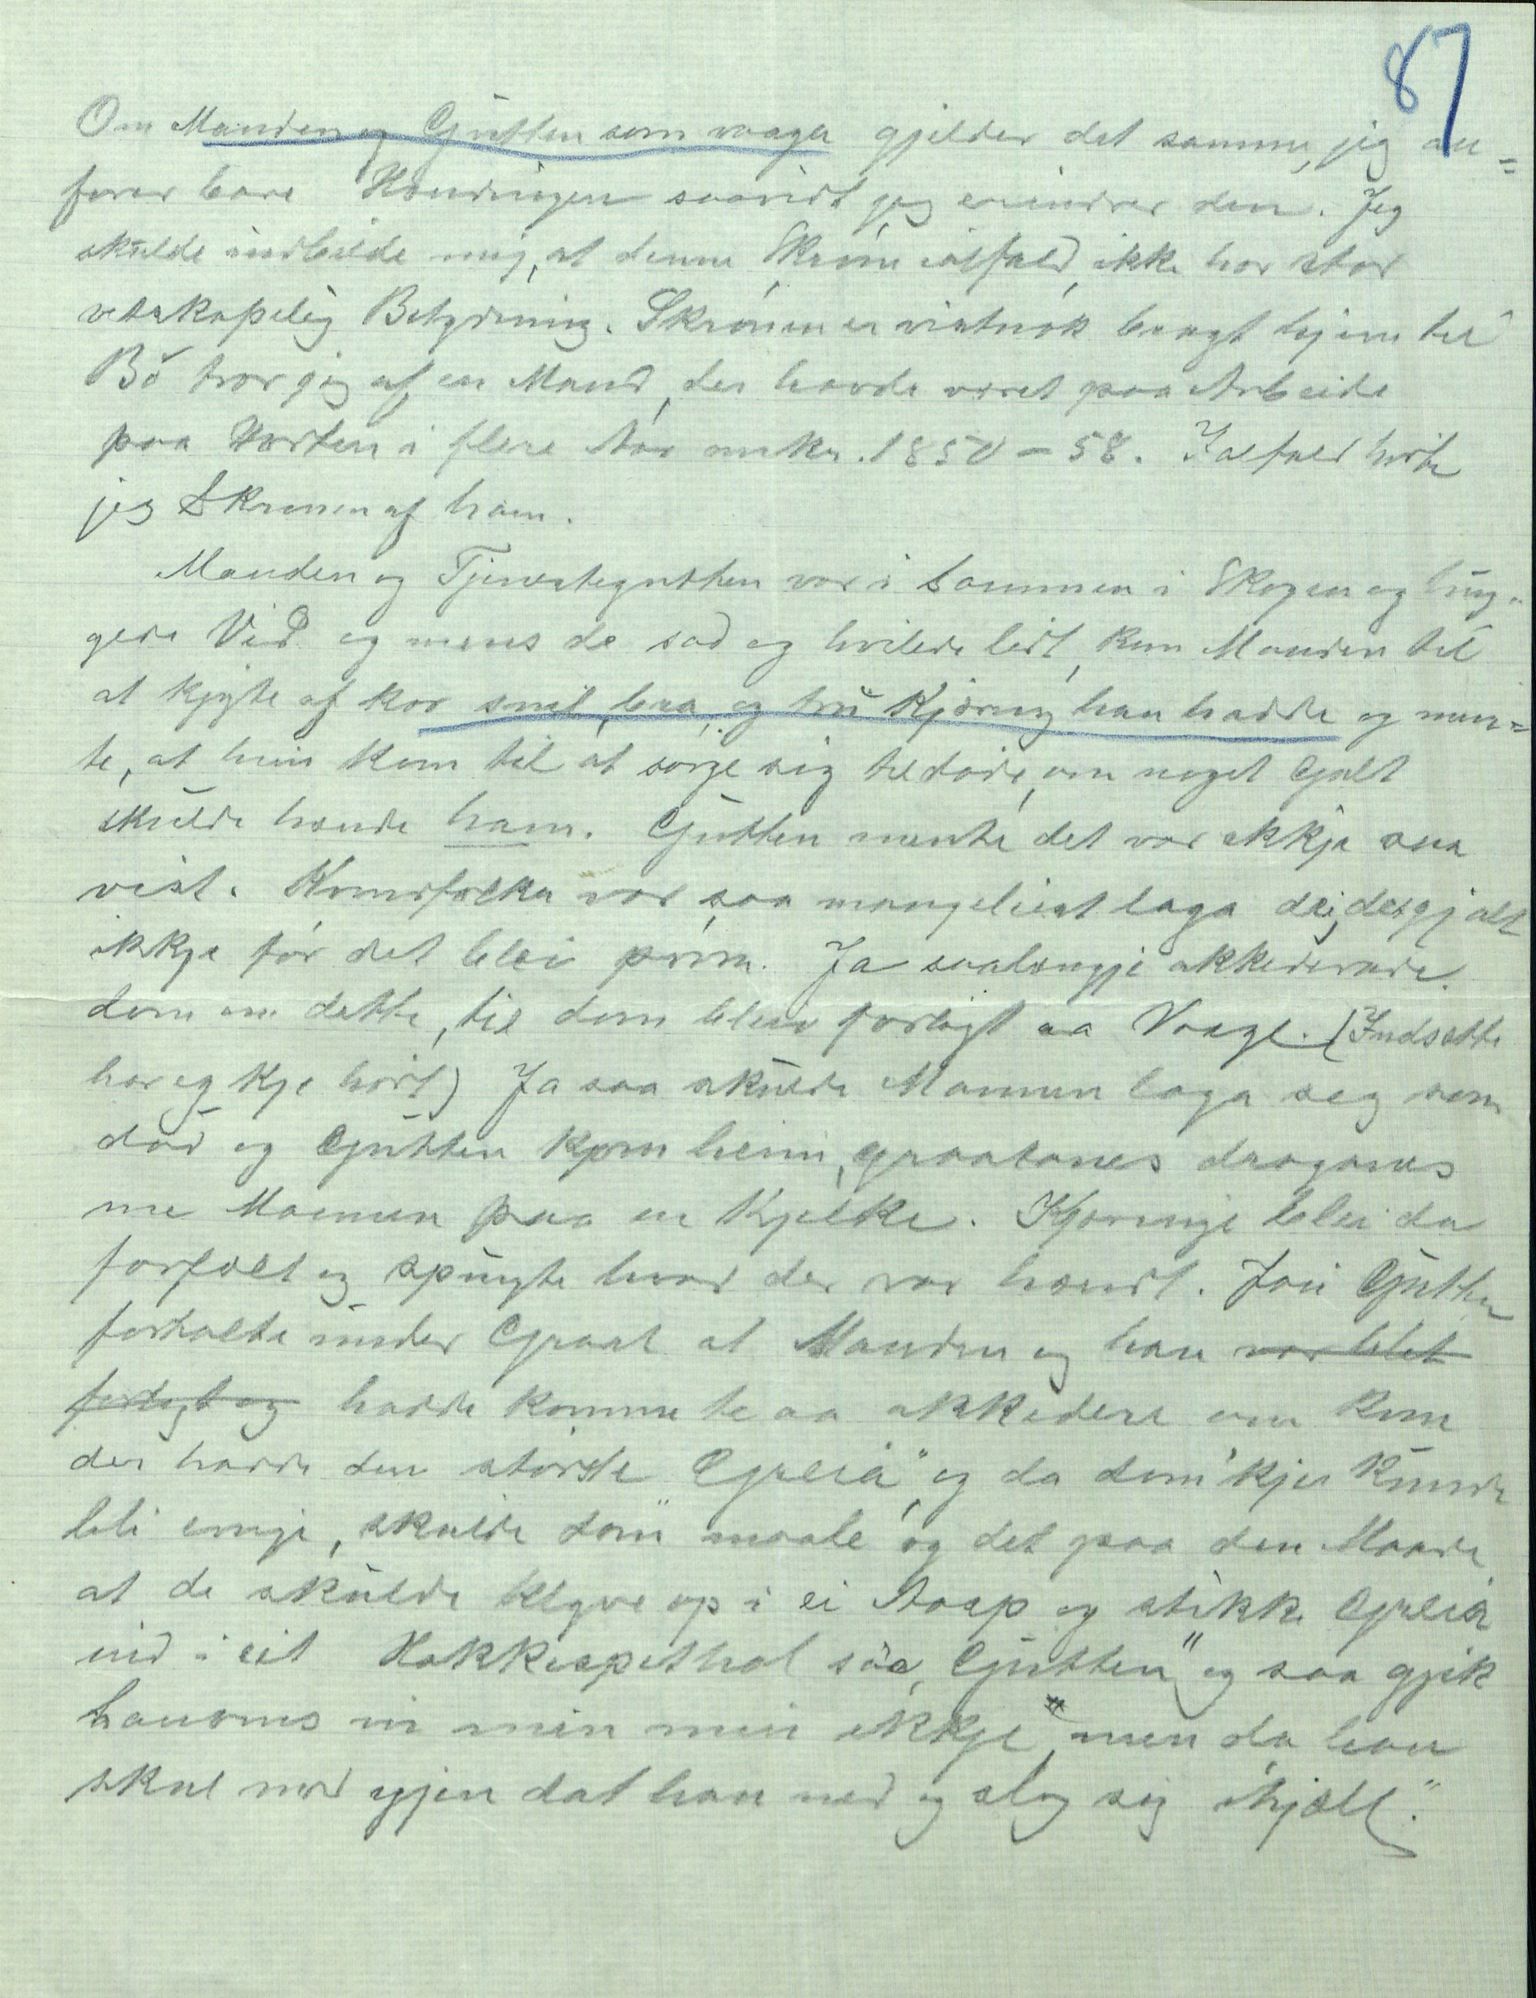 87
Om Manden og Gutten som vaaga gjelder det samme, jeg an=
fører bare Handlingen saavidt jeg erindrer den. Jeg
skulde indbilde mig, at denne Skröne ialfald, ikke har stor
vetskapelig Betydning. Skrönen er vistnok bragt hjem til
Bö tror jeg af en Mand, der havde været paa Arbeide
paa Horten i flere Aar omkr. 1850-58. Ialfald hörte
jeg Skrönen af ham.
Manden og Tjenestegutten var i Sammen i Skogen og hug-
gede Ved og mens de sad og hvilede lidt, kom Manden til
at kjyte af kor snil, bra, og tru Kjæring han hadde og men=
te, at hun kom til at sörge sig tildöde, om noget Galt
skulde hænde ham. Gutten mente det var ikkje saa
vist. Kvindfolka var saa mangeleist laga dei, desgjalt
ikkje för det blei pröva. Ja saalengje akkederede
dom om dette, til dom bleiv forligt aa Vaage. (Indsatte
har eg kje hört) Ja saa skulde Mannen laga seg som
död og Gutten kom heim, graatanes draganes
me Mannen paa en Kjelke. Kjæringe blei da
forfælt og spurgte hvad der var hændt. Joü Gutten
fortalte under Graat at Manden og han var blit
fortegt og hadde komme te aa akkedere om kem
der hadde den störste Greiä" og da dem 'kje kunde
bli einige, skulde dom maale og det paa den Maade,
at de skulde klyve op i ei Aasp og stikke Greiä
ind i eit Hakkespethol sa, Gutten" og saa gjik
hanoms in men min ikkje" men da han
skul ned igjen dat han ned og slog sig ihjæll."